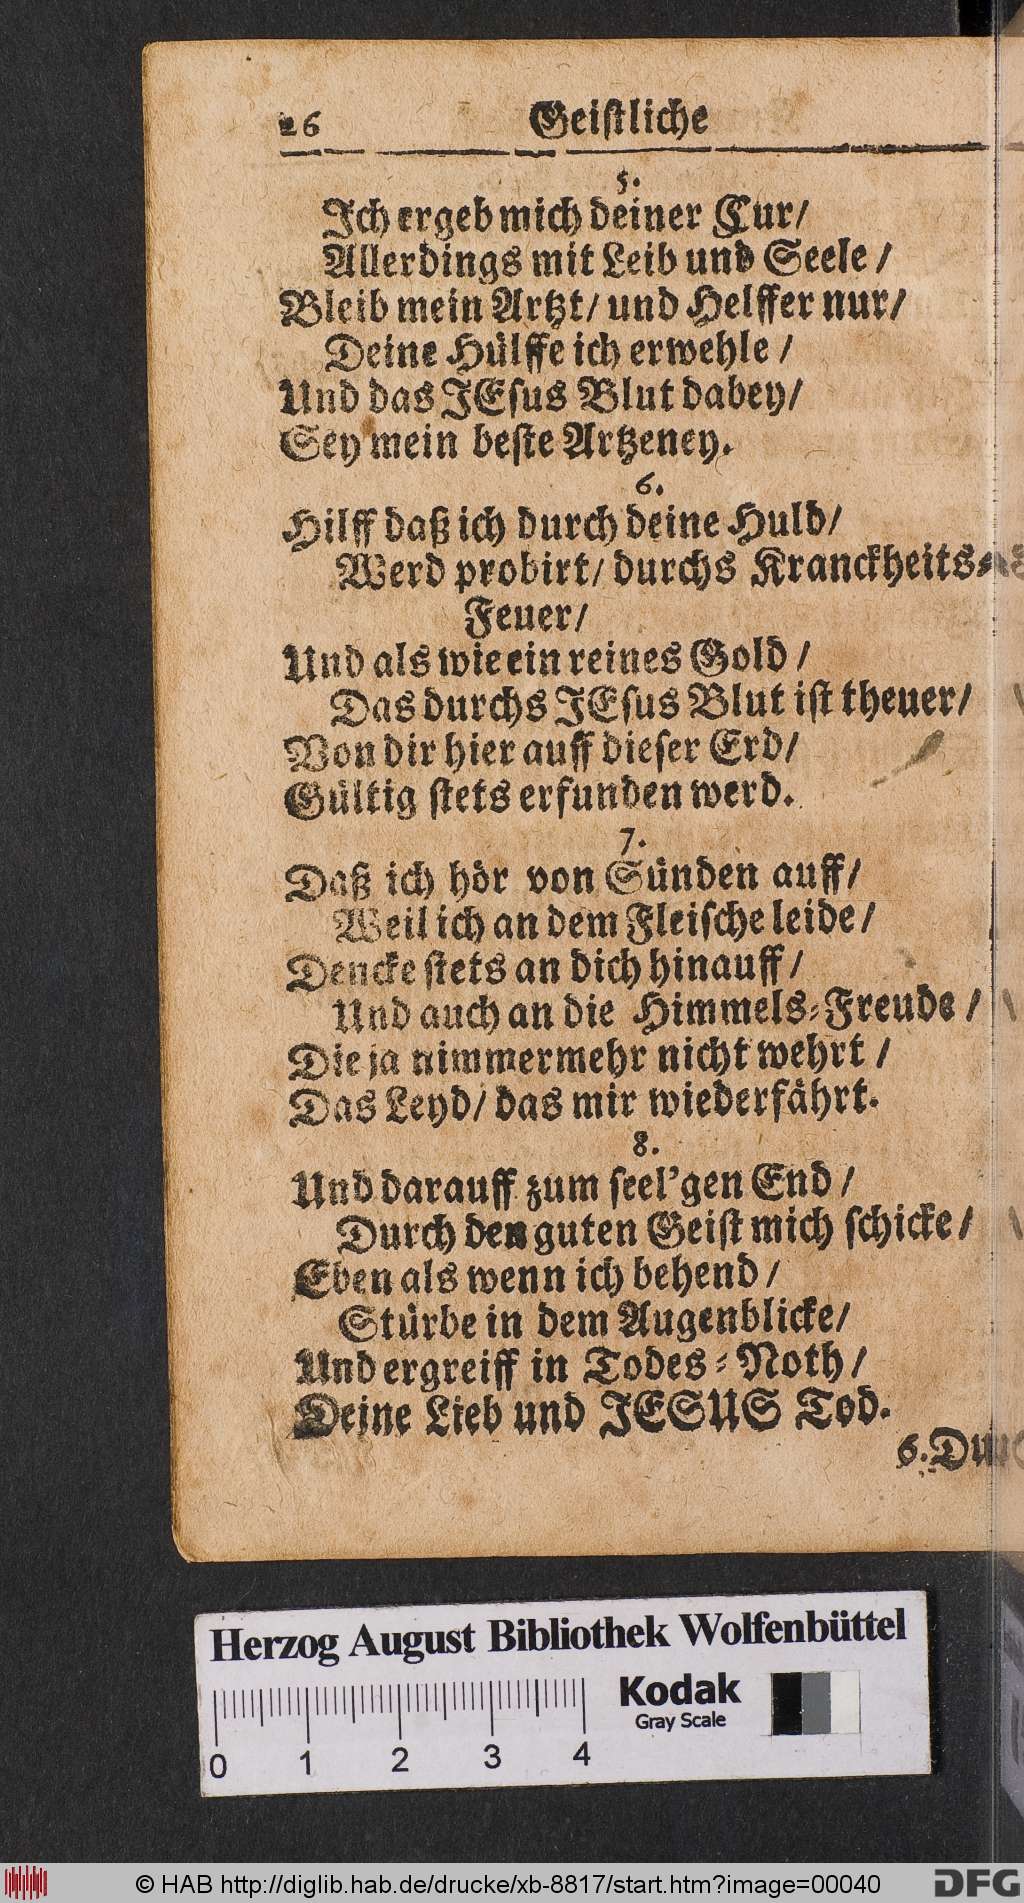 26 Geistliche
5.
Ich ergeb mich deiner Cur/
Allerdings mit Leib und Seele /
Bleib mein Artzt/ und Helffer nur/
Deine Hülffe ich erwehle /
Und das JEsus Blut dabey/
Sey mein beste Artzeney.
6.
Hilff daß ich durch deine Huld/
Werd probirt/ durchs Kranckheits-
Feuer/
Und als wie ein reines Gold /
Das durchs JEsus Blut ist theuer/
Von dir hier auff dieser Erd/
Gültig stets erfunden werd.
7.
Daß ich hör von Sünden auff/
Weil ich an dem Fleische leide/
Dencke stets an dich hinauff /
Und auch an die Himmels-Freude /
Die ja nimmermehr nicht wehrt /
Das Leyd/ das mir wiederfährt.
8.
Und darauff zum seel'gen End /
Durch den guten Geist mich schicke/
Eben als wenn ich behend /
Stürbe in dem Augenblicke/
Und ergreiff in Todes-Noth/
Deine Lieb und JESUS Tod.
6.
Herzog August Bibliothek Wolfenbüttel
Kodak
Gray Scale
0 1 2 3 4
© HAB http://diglib.hab.de/drucke/xb-8817/start.htm?image=00040
DFG